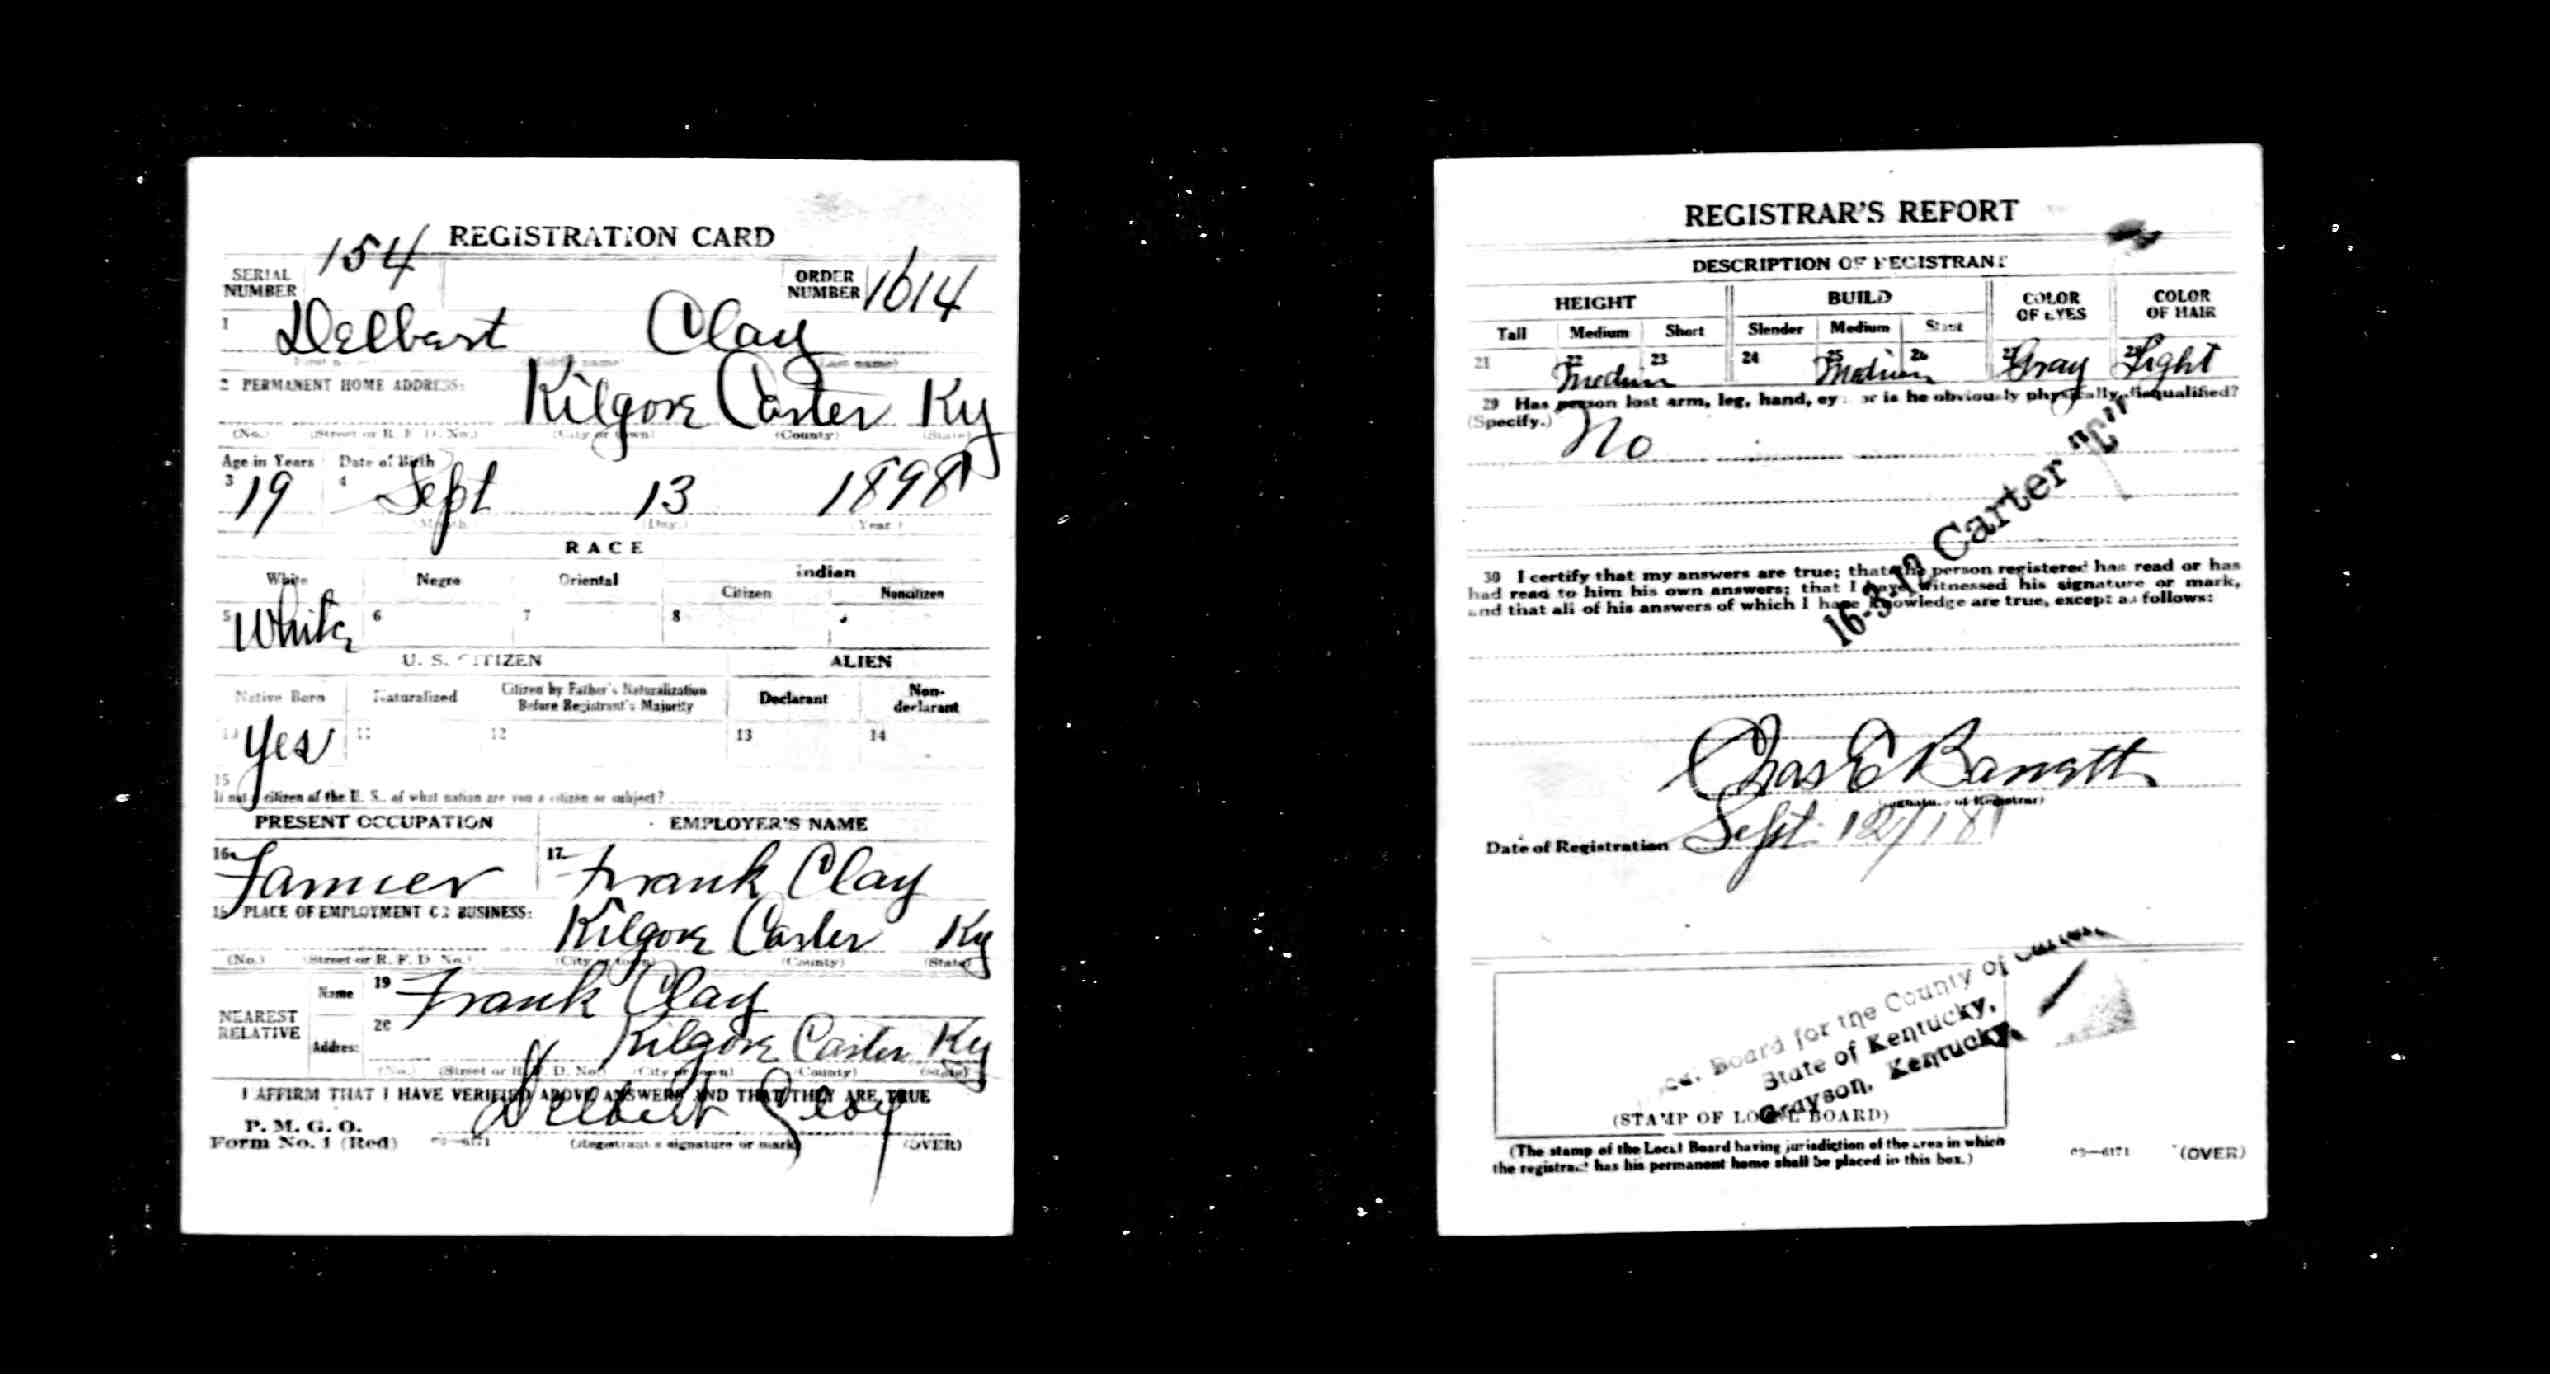 REGISTRATION CARD
SERIAL NUMBER 154
ORDER NUMBER 1614
1 Delbert Clay
(Last name)
2 PERMANENT HOME ADDRESS:
Kilgore Carter Ky
(No.) (Street or R. F. D. No.) (City or town) (County) (State)
Age in Years Date of Birth
3 19 4 Sept 13 1898
(Month.) (Day.) (Year.)
RACE
White Negro Oriental Indian
Citizen Noncitizen
5 White 6 7 8
U. S. CITIZEN ALIEN
Native Born Naturalized Citizen by Father's Naturalization Before Registrant's Majority Declarant Non-declarant
10 Yes 11 12 13 14
15
If not a citizen of the U. S., of what nation are you a citizen or subject?
PRESENT OCCUPATION EMPLOYER'S NAME
16 Farmer 17 Frank Clay
18 PLACE OF EMPLOYMENT OR BUSINESS:
Kilgore Carter Ky
(No.) (Street or R. F. D. No.) (City or town) (County) (State)
NEAREST RELATIVE
Name 19 Frank Clay
Address 20 Kilgore Carter Ky
(No.) (Street or R. F. D. No.) (City or town) (County) (State)
I AFFIRM THAT I HAVE VERIFIED ABOVE ANSWERS AND THAT THEY ARE TRUE
P. M. G. O.
Form No. 1 (Red) 03—6171 Delbert Clay
(Registrant's signature or mark) (OVER)
REGISTRAR'S REPORT
DESCRIPTION OF REGISTRANT
HEIGHT BUILD COLOR OF EYES COLOR OF HAIR
Tall Medium Short Slender Medium Stout
21 22 Medium 23 24 25 Medium 26 27 Gray 28 Light
29 Has person lost arm, leg, hand, eye, or is he obviously physically disqualified?
(Specify.) No
16-3-12 Carter "C"
30 I certify that my answers are true; that the person registered has read or has
had read to him his own answers; that I have witnessed his signature or mark,
and that all of his answers of which I have knowledge are true, except as follows:
Chas E
(Signature of Registrar)
Date of Registration Sept 12/18
Board for the County of
State of Kentucky,
Grayson, Kentucky
(STAMP OF LOCAL BOARD)
(The stamp of the Local Board having jurisdiction of the area in which
the registrant has his permanent home shall be placed in this box.)
03—6171 (OVER)